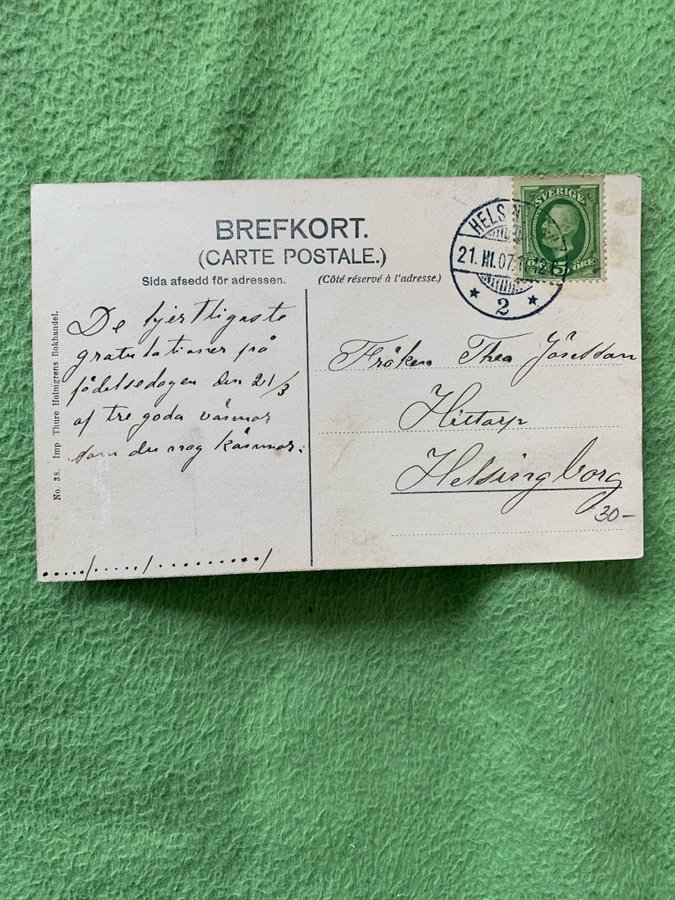 BREFKORT.
(CARTE POSTALE.)
Sida afsedd för adressen.
(Côté réservé à l'adresse.)
SVERIGE
5
ÖRE
HELS
21. III. 07.
2
De hjertligaste
gratulationer på
födelsedagen den 21/3
af tre goda vänner
som du nog känner.
Fröken Thea
Hittarp
Helsingborg
30-
No. 38. Imp Thure Holmgrens Bokhandel.